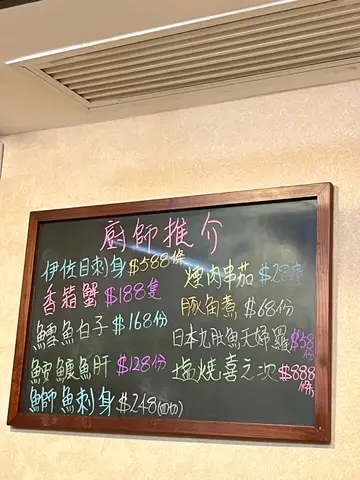 廚師推介
伊佐目刺身 $588條
香箱蟹 $188隻
鱈魚白子 $168份
鮟鱇魚肝 $128份
鰤魚刺身 $248(四切)
煙肉串茄 $28串
豚角煮 $68份
日本九肚魚天婦羅 $58份
塩燒喜之次 $888條